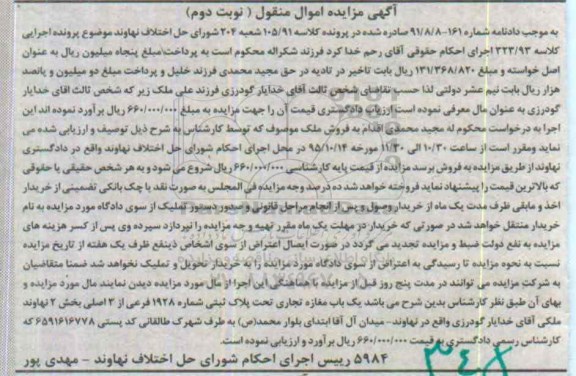 آگهی مزایده اموال منقول ( نوبت دوم)
به موجب دادنامه شماره ۱۶۱-۹۱/۸/۸ صادره شده در پرونده کلاسه ۱۰۵/۹۱ شعبه ۲۰۴ شورای حل اختلاف نهاوند موضوع پرونده اجرایی
کلاسه ۳۲۳/۹۳ اجرای احکام حقوقی آقای رحم خدا کرد فرزند شکراله محکوم است به پرداخت مبلغ پنجاه میلیون ریال به عنوان
اصل خواسته و مبلغ ۱۳۱/۳۶۸/۸۲۰ ریال بابت تاخیر در تادیه در حق مجید محمدی فرزند خلیل و پرداخت مبلغ دو میلیون و پانصد
هزار ریال بابت نیم عشر دولتی لذا حسب تقاضای شخص ثالث آقای خدایار گودرزی فرزند علی ملک زیر که شخص ثالث اقای خدایار
گودرزی به عنوان مال معرفی نموده است ارزیاب دادگستری قیمت آن را جهت مزایده به مبلغ ۶۶۰/۰۰۰/۰۰۰ ریال برآورد نموده اند این
اجرا به درخواست محکوم له مجید محمدی اقدام به فروش ملک موصوف که توسط کارشناس به شرح ذیل توصیف و ارزیابی شده می
نماید ومقرر است از ساعت ۱۰/۳۰ الی ۱۱/۳۰ مورخه ۹۵/۱۰/۱۴ در محل اجرای احکام شورای حل اختلاف نهاوند واقع در دادگستری
نهاوند از طریق مزایده به فروش برسد مزایده از قیمت پایه کارشناسی ۶۶۰/۰۰۰/۰۰۰ ریال شروع می شود و به هر شخص حقیقی یا حقوقی
که بالاترین قیمت را پیشنهاد نماید فروخته خواهد شد ده درصد وجه مزایده فی المجلس به صورت نقد یا چک بانکی تضمینی از خریدار
اخذ و مابقی ظرف مدت یک ماه از خریدار وصول و پس از انجام مراحل قانونی و صدور دستور تملیک از سوی دادگاه مورد مزایده به نام
خریدار منتقل خواهد شد در صورتی که خریدار در مهلت یک ماه مقرر تهیه و وجه مزایده را نپردازد سپرده وی پس از کسر هزینه های
مزایده به نفع دولت ضبط و مزایده تجدید می گردد در صورت ایصال اعتراض از سوی اشخاص ذینفع ظرف یک هفته از تاریخ مزایده
نسبت به نحوه مزایده تا رسیدگی به اعتراض از سوی دادگاه مورد مزایده را به خریدار تحویل و تملیک نخواهد شد ضمنا متقاضیان
به شرکت مزایده می توانند در مدت پنج روز قبل از مزایده با هماهنگی این اجرا از مال مورد مزایده دیدن نمایند مال مورد مزایده و
بهای آن طبق نظر کارشناس بدین شرح می باشد یک باب مغازه تجاری تحت پلاک ثبتی شماره ۱۹۲۸ فرعی از ۳ اصلی بخش ۲ نهاوند
ملکی آقای خدایار گودرزی واقع در نهاوند- میدان آل آقا ابتدای بلوار محمد(ص) به طرف شهرک طالقانی کد پستی ۶۵۹۱۶۱۶۷۷۸ که
کارشناس رسمی دادگستری به قیمت ۶۶۰/۰۰۰/۰۰۰ ریال برآورد و ارزیابی نموده است.
۵۹۸۴ رییس اجرای احکام شورای حل اختلاف نهاوند – مهدی پور